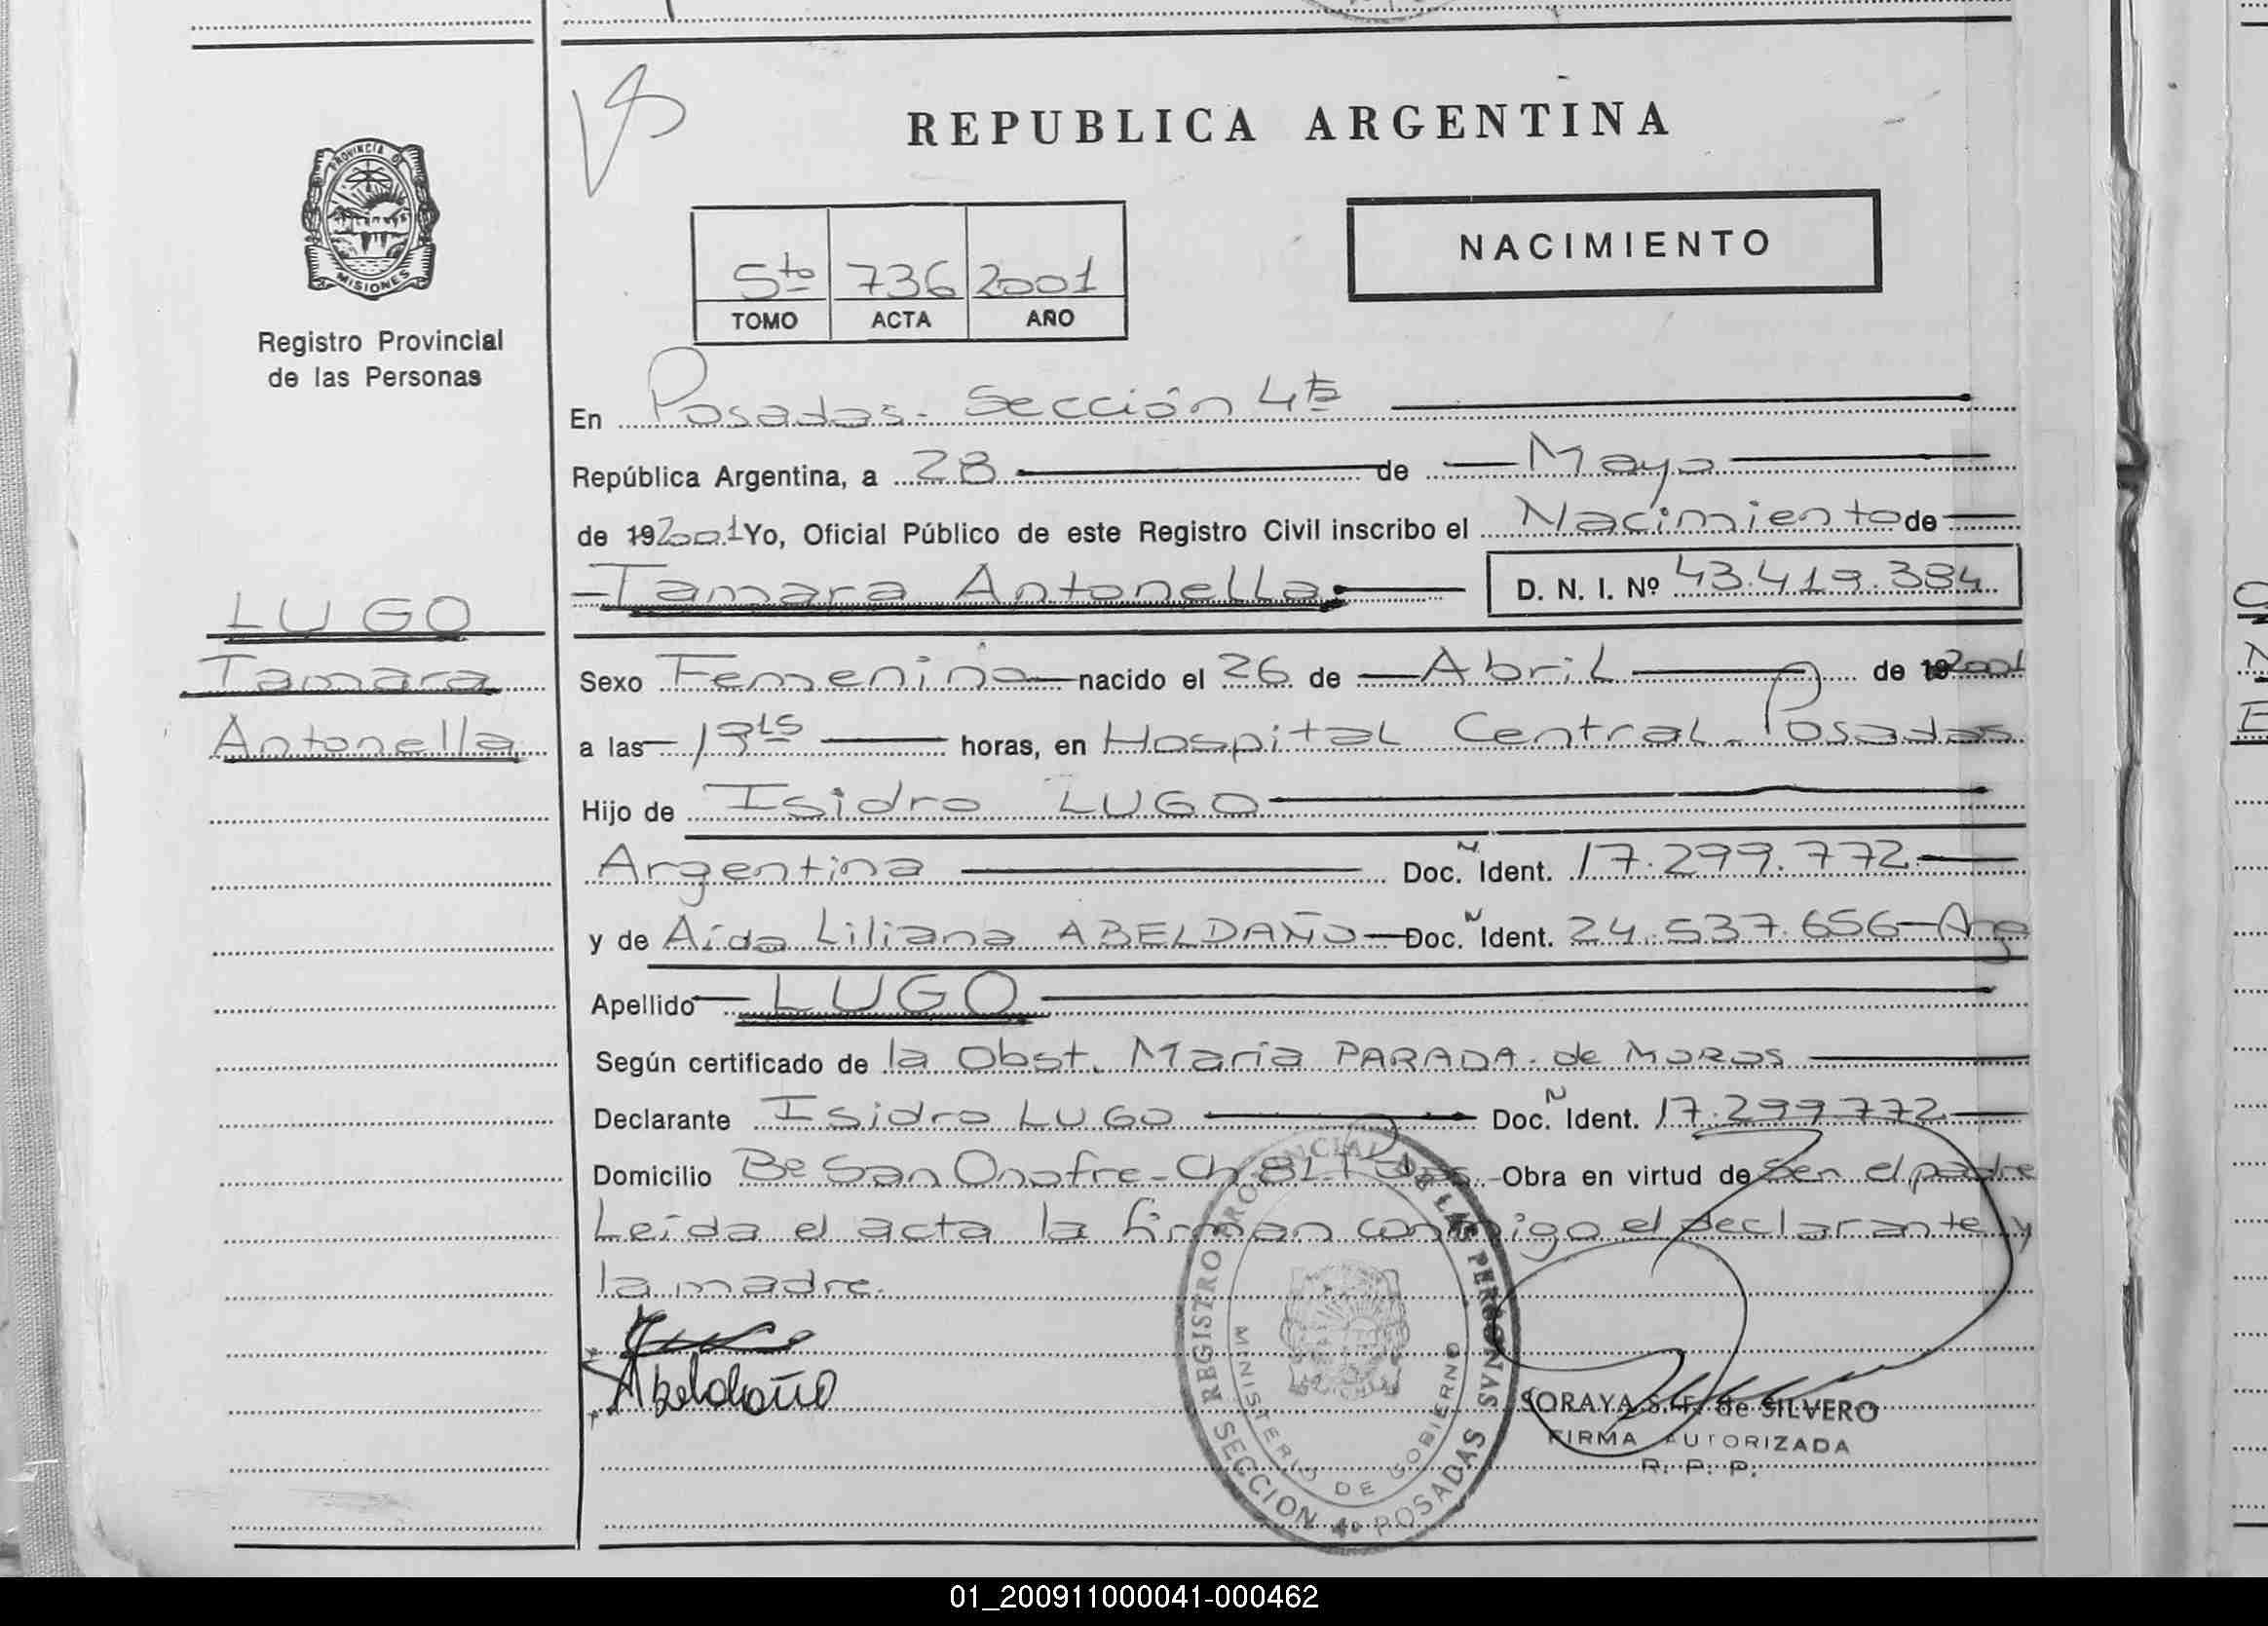 REPUBLICA ARGENTINA
PROVINCIA DE
MISIONES
Registro Provincial
de las Personas
NACIMIENTO
5to 736 2001
TOMO ACTA AÑO
En Posadas - Sección 4ta
República Argentina, a 28 de Mayo
de 19 2001 Yo, Oficial Público de este Registro Civil inscribo el Nacimiento de
Tamara Antonella D. N. I. Nº 43.419.384
LUGO
Tamara
Antonella
Sexo Femenino nacido el 26 de Abril de 19 2001
a las 19 15 horas, en Hospital Central - Posadas
Hijo de Isidro LUGO
Argentina Doc. N Ident. 17.299.772
y de Aída Liliana ABELDAÑO Doc. Ñ Ident. 24.537.656 - Arg
Apellido LUGO
Según certificado de la Obst. María PARADA de MOROS
Declarante Isidro LUGO Doc. N Ident. 17.299.772
Domicilio Bº San Onofre - Ch 81 - Obra en virtud de ser el padre
Leída el acta la firman conmigo el declarante y
la madre.
Abeldaño
REGISTRO PROVINCIAL DE LAS PERSONAS
MINISTERIO DE GOBIERNO
SECCION 4º POSADAS
SORAYA S. F. de SILVERO
FIRMA AUTORIZADA
R. P. P.
01_200911000041-000462